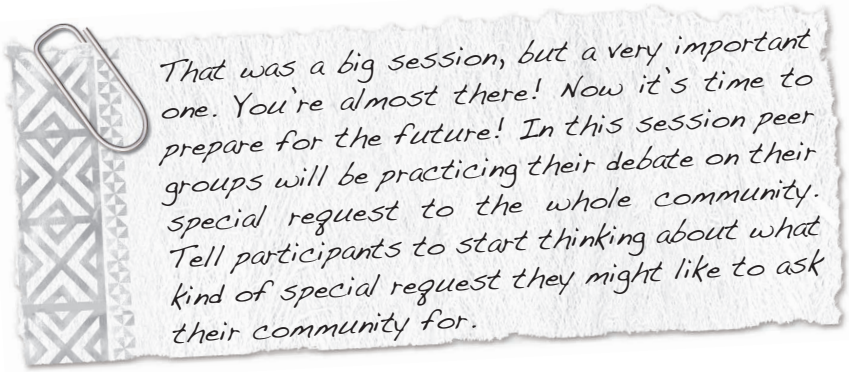 That was a big session, but a very important
one. You're almost there! Now it's time to
prepare for the future! In this session peer
groups will be practicing their debate on their
special request to the whole community.
Tell participants to start thinking about what
kind of special request they might like to ask
their community for.